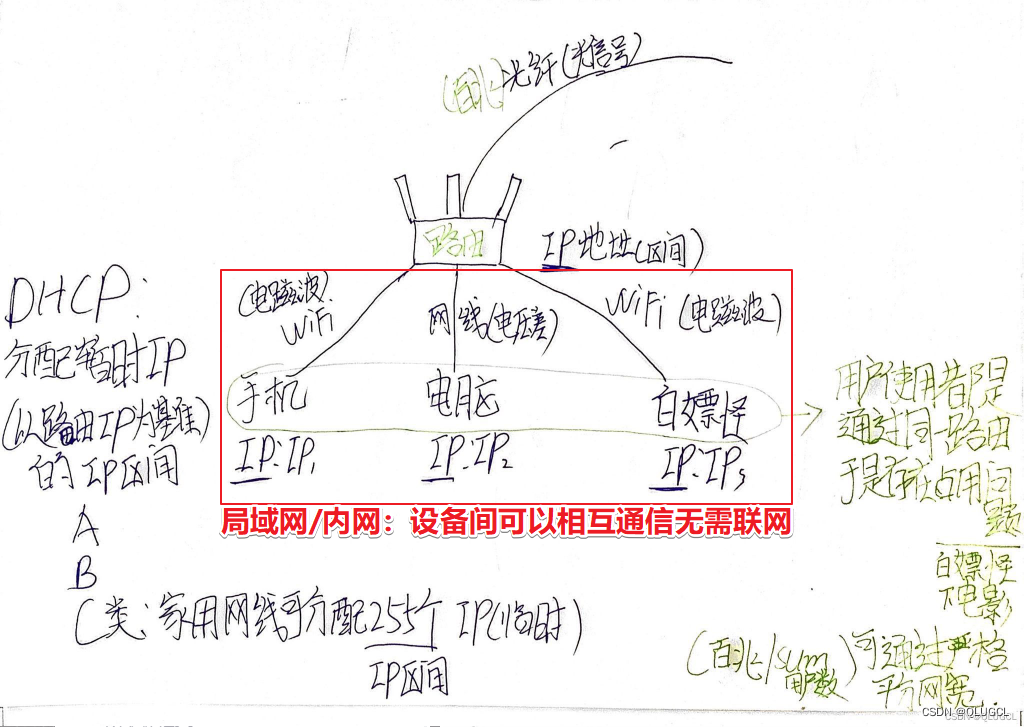 (百兆)光纤(光信号)
路由
IP地址(区间)
(电磁波)
WiFi
网线(电压差)
WiFi (电磁波)
手机
电脑
白嫖怪
IP:IP₁
IP:IP₂
IP:IP₃
局域网/内网：设备间可以相互通信无需联网
DHCP:
分配暂时IP
(以路由IP为基准)
的IP区间
A
B
C类:家用网线可分配255个 IP(临时)
IP区间
用户使用者都是
通过同一路由
于是存在占用问
题
白嫖怪
下电影
(百兆/sum用户数)可通过严格
平分网宽
CSDN @QLUGCL